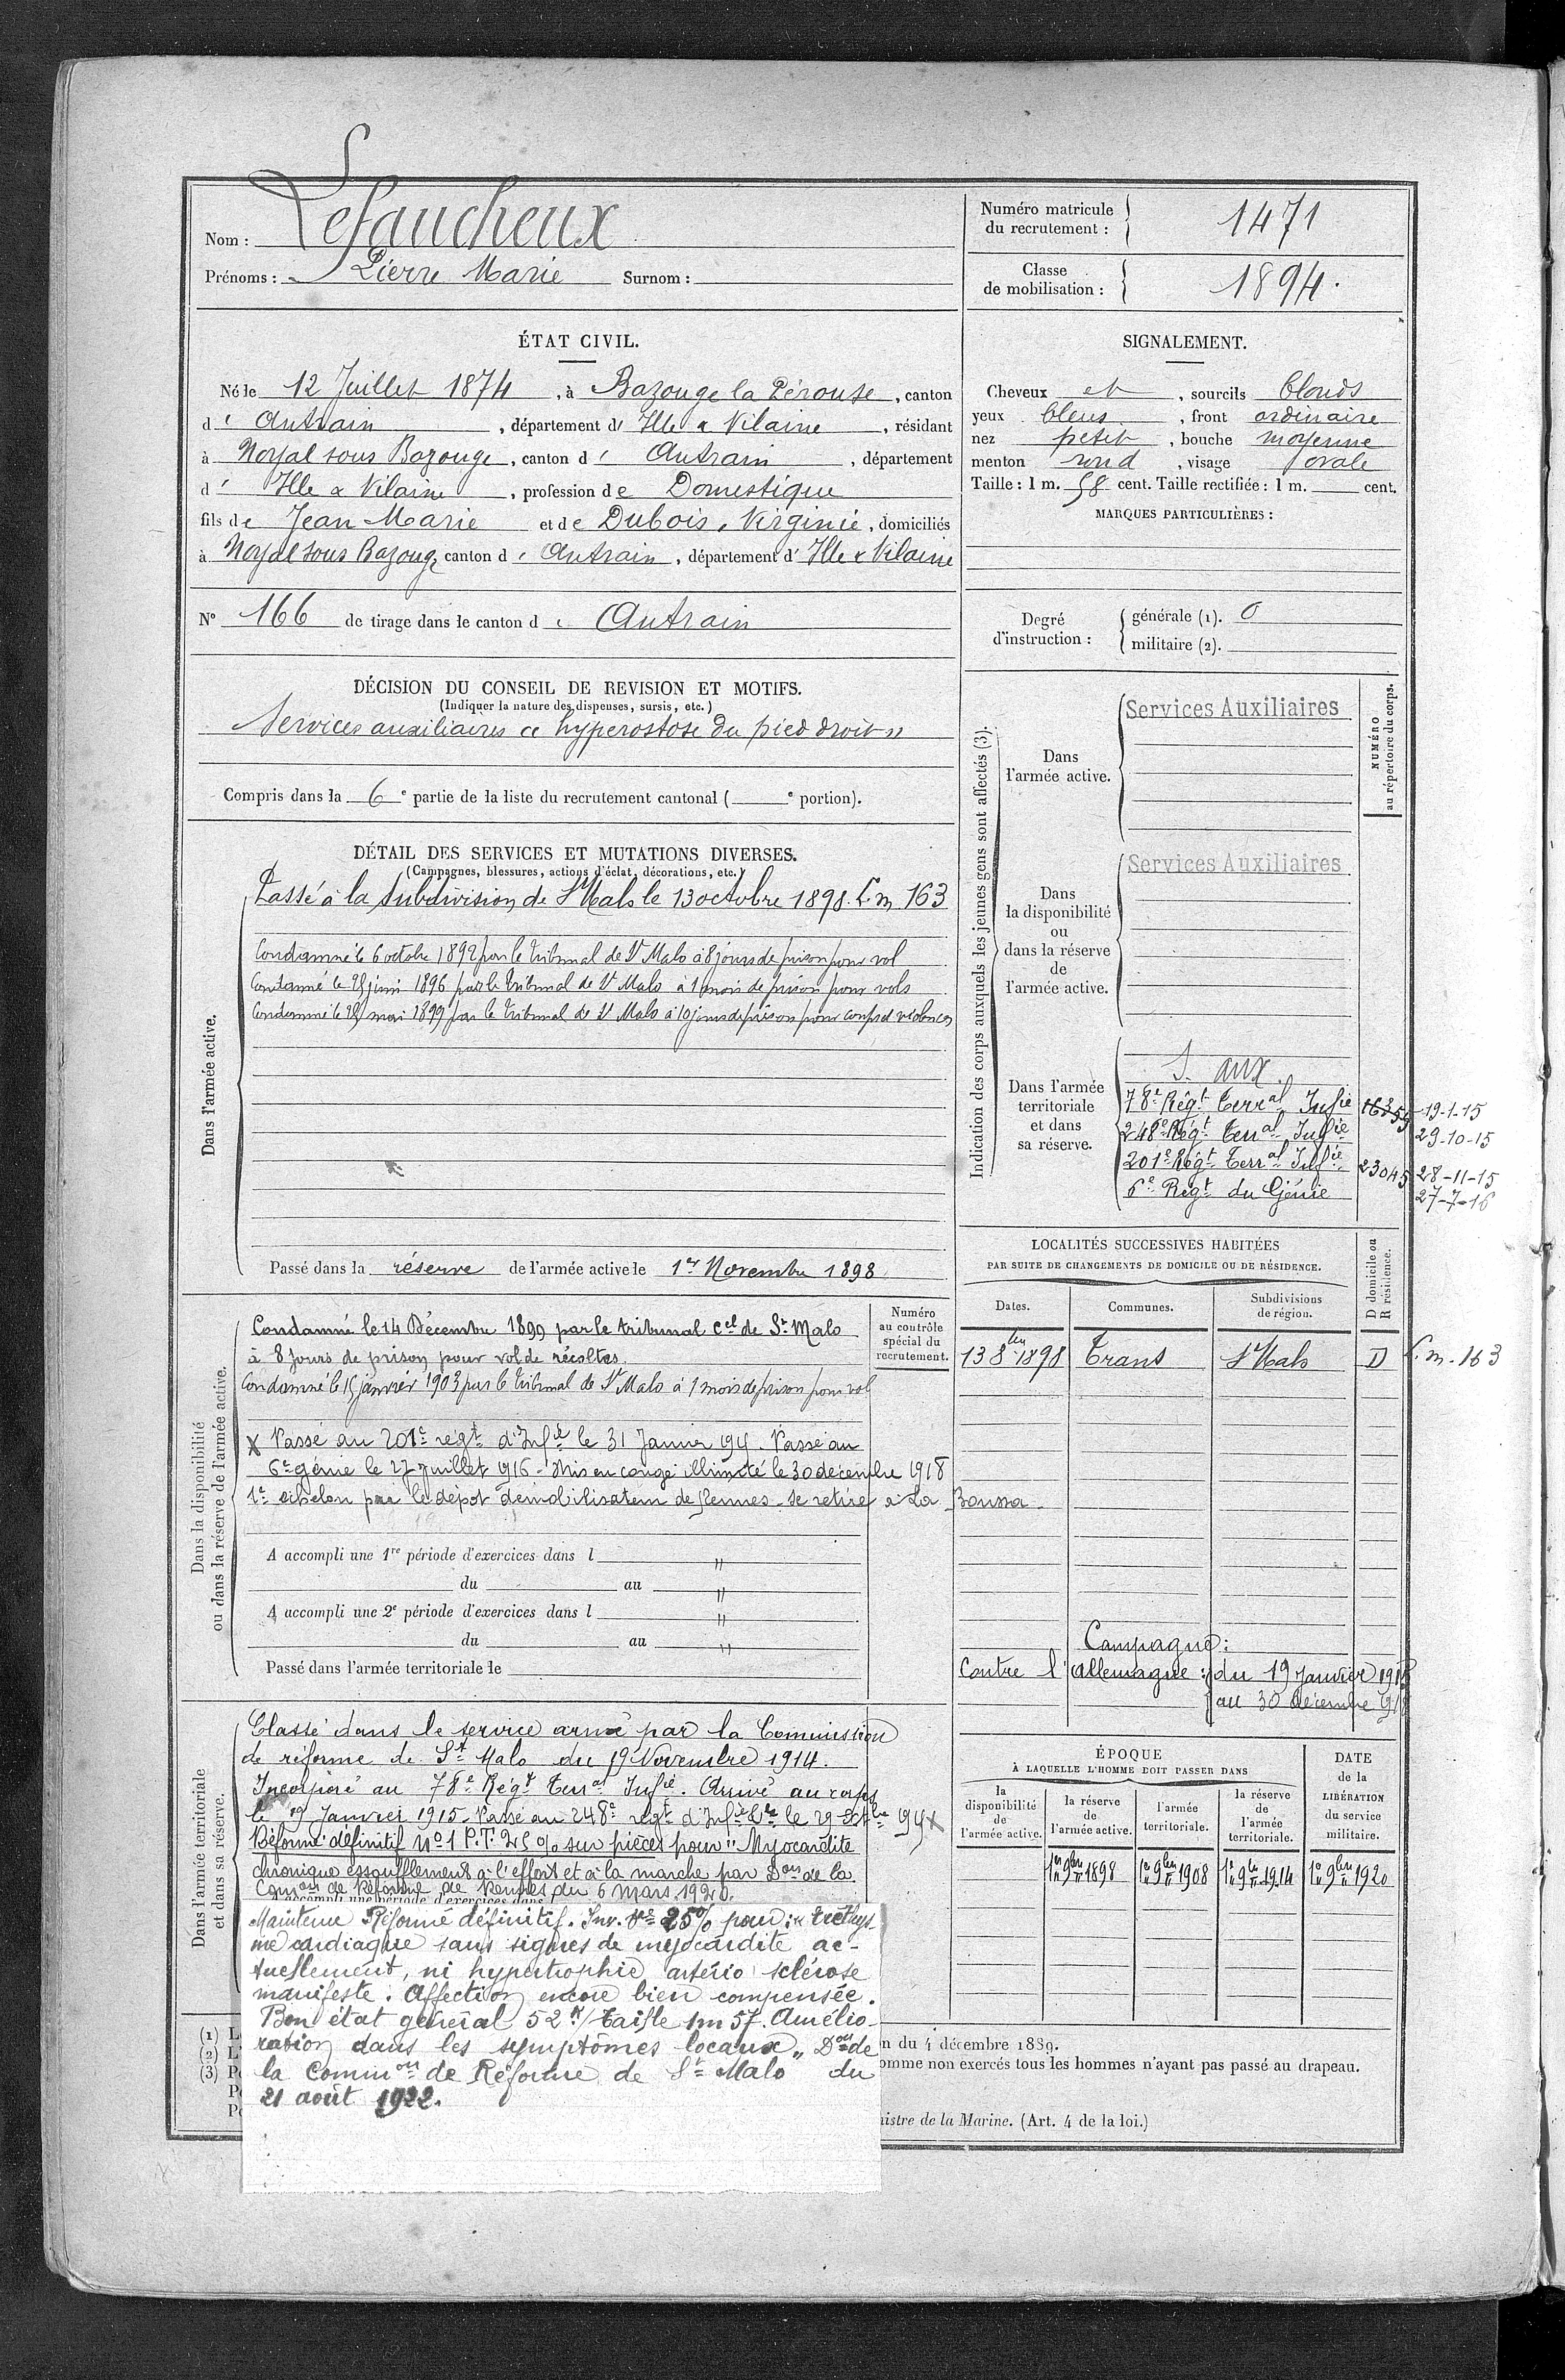 Nom : Lefaucheux
Prénoms : Pierre Marie Surnom :
Numéro matricule du recrutement : 1471
Classe de mobilisation : 1894.
ÉTAT CIVIL.
Né le 12 Juillet 1874, à Bazouge la Pérouse, canton
d' Antrain, département d' Ille & Vilaine, résidant
à Noyal sous Bazouge, canton d' Antrain, département
d' Ille & Vilaine, profession de Domestique
fils de Jean Marie et de Dubois, Virginie, domiciliés
à Noyal sous Bazoug, canton d' Antrain, département d' Ille & Vilaine
N° 166 de tirage dans le canton d' Antrain
SIGNALEMENT.
Cheveux et, sourcils blonds
yeux bleus, front ordinaire
nez petit, bouche moyenne
menton rond, visage ovale
Taille : 1 m. 58 cent. Taille rectifiée : 1 m. cent.
MARQUES PARTICULIÈRES :
Degré d'instruction : générale (1). 0
militaire (2).
DÉCISION DU CONSEIL DE REVISION ET MOTIFS.
(Indiquer la nature des dispenses, sursis, etc.)
Services auxiliaires « hyperostose du pied droit »
Compris dans la 6e partie de la liste du recrutement cantonal ( e portion).
DÉTAIL DES SERVICES ET MUTATIONS DIVERSES.
(Campagnes, blessures, actions d'éclat, décorations, etc.)
Dans l'armée active.
Passé à la subdivision de St Malo le 13 octobre 1898. L.m 163
Condamné le 6 octobre 1892 par le tribunal de St Malo à 8 jours de prison pour vol
Condamné le 25 juin 1896 par le tribunal de St Malo à 1 mois de prison pour vols
Condamné le 25 mai 1899 par le tribunal de St Malo à 10 jours de prison pour coups et violences
Passé dans la réserve de l'armée active le 1er Novembre 1898
Dans la disponibilité ou dans la réserve de l'armée active.
Numéro au contrôle spécial du recrutement.
Condamné le 14 Décembre 1899 par le tribunal cel de St Malo
à 8 jours de prison pour vol de récoltes.
Condamné le 15 janvier 1903 par le tribunal de St Malo à 1 mois de prison pour vol
X Passé au 201e régt d'Infie le 31 Janvier 191 . Passé au
6e génie le 27 juillet 1916 - Mis en congé illimité le 30 décembre 1918
1e échelon par le dépôt démobilisateur de Rennes. Se retire à La Boussa
A accompli une 1re période d'exercices dans l "
du au "
A accompli une 2e période d'exercices dans l "
du au "
Passé dans l'armée territoriale le
Dans l'armée territoriale et dans sa réserve.
Classé dans le service armé par la Commission
de réforme de St Malo du 19 Novembre 1914.
Incorporé au 78e Régt Terral Infie. Arrivé au corps
le 19 Janvier 1915. Passé au 248e régt d'Infie le 29 8bre 1915 X
Réformé définitif No 1 P.T. 25% sur pièces pour "Myocardite
chronique essoufflement à l'effort et à la marche par Don de la
Comon de Réforme de Rennes du 6 Mars 1920.
Maintenu Réformé définitif. Inv. 25% pour : « éréthys-
me cardiaque sans signes de myocardite ac-
tuellement, ni hypertrophie artério sclérose
manifeste. Affection encore bien compensée.
Bon état général 52 k/ taille 1m57. Amélio-
ration dans les symptômes locaux" Don de
la Common de Réforme de St Malo du
21 août 1922.
Indication des corps auxquels les jeunes gens sont affectés (3).
NUMÉRO au répertoire du corps.
Dans l'armée active.
Services Auxiliaires
Dans la disponibilité ou dans la réserve de l'armée active.
Services Auxiliaires
Dans l'armée territoriale et dans sa réserve.
S. aux.
78e Régt Terral Infie 16359 19-1-15
248e Régt Terral Infie 29-10-15
201e Régt Terral Infie 23045 28-11-15
6e Régt du Génie 27-7-16
LOCALITÉS SUCCESSIVES HABITÉES
PAR SUITE DE CHANGEMENTS DE DOMICILE OU DE RÉSIDENCE.
Dates. Communes. Subdivisions de région. D domicile ou R résidence.
13 8bre 1898 Trans St Malo D L.m. 163
Campagne :
Contre l'Allemagne : du 19 Janvier 1915
au 30 Décembre 1918
ÉPOQUE
À LAQUELLE L'HOMME DOIT PASSER DANS
la disponibilité de l'armée active. la réserve de l'armée active. l'armée territoriale. la réserve de l'armée territoriale.
DATE de la LIBÉRATION du service militaire.
1er 9bre 1898 1er 9bre 1908 1er 9bre 1914 1er 9bre 1920
(1) L
(2) L
(3) P
P
P
n du 4 décembre 1889.
omme non exercés tous les hommes n'ayant pas passé au drapeau.
nistre de la Marine. (Art. 4 de la loi.)